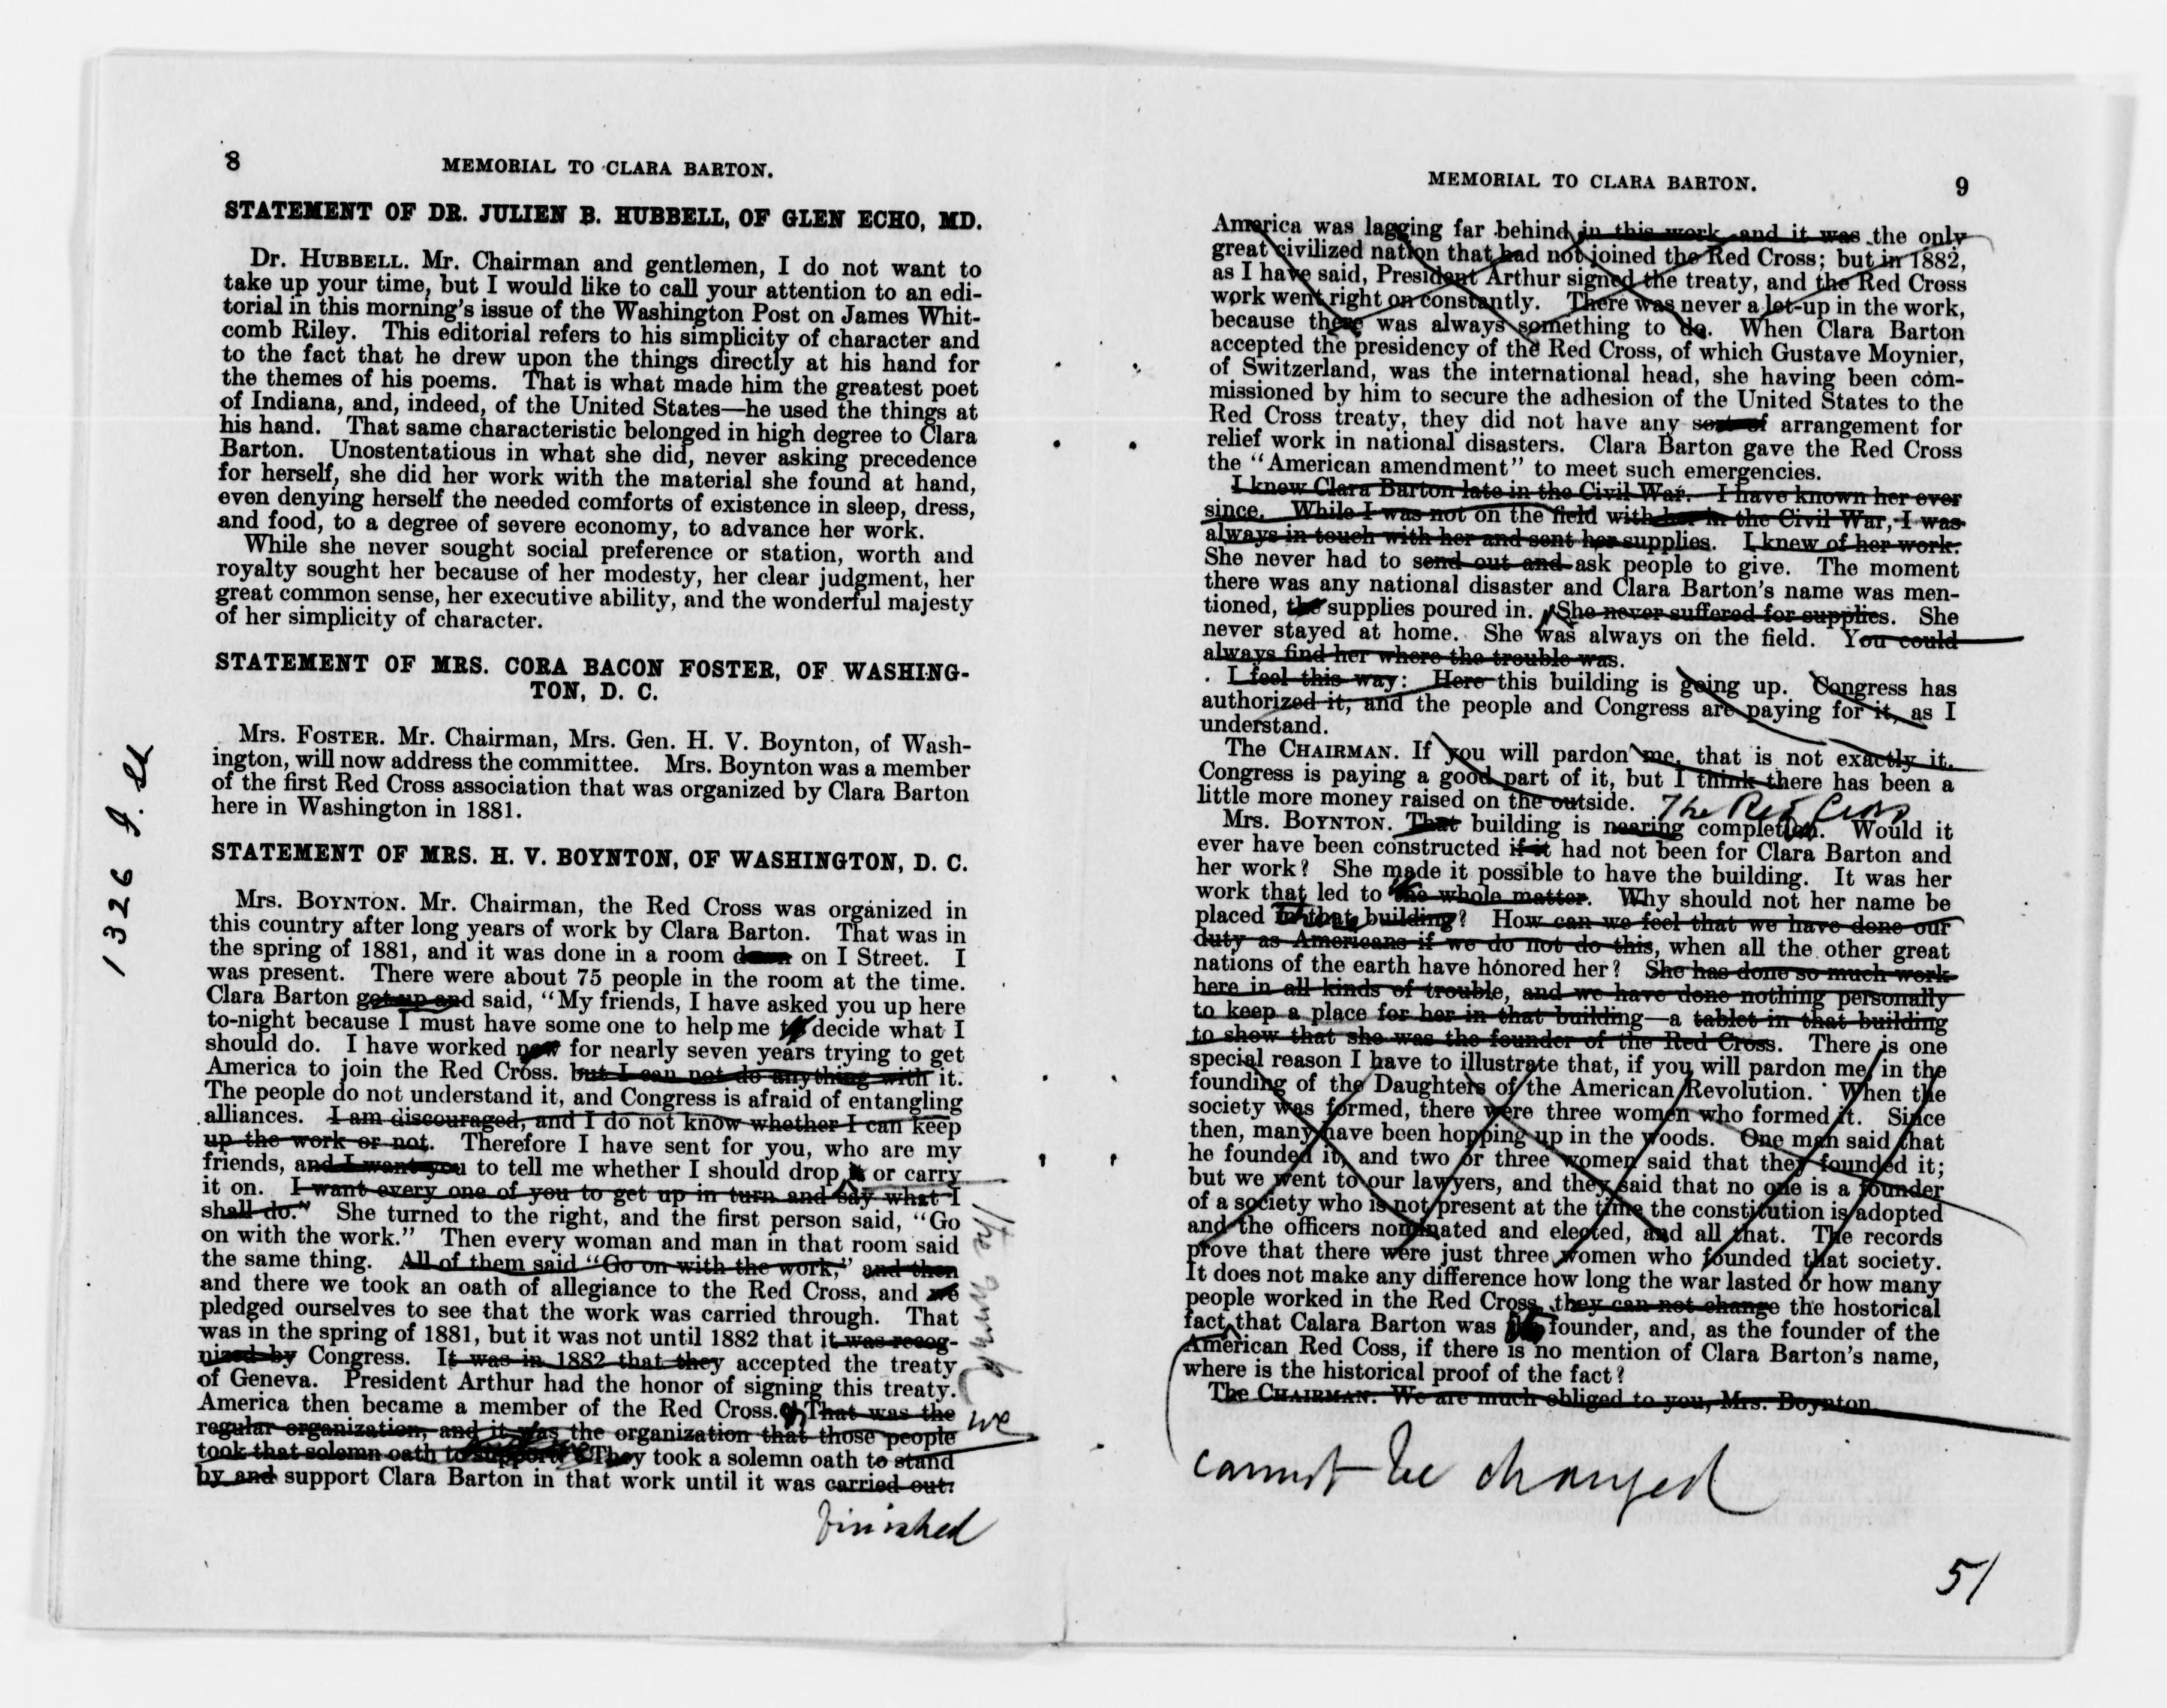 8
MEMORIAL TO CLARA BARTON.
STATEMENT OF DR. JULIEN B. HUBBELL, OF GLEN ECHO, MD.
Dr. HUBBELL. Mr. Chairman and gentlemen, I do not want to
take up your time, but I would like to call your attention to an edi-
torial in this morning's issue of the Washington Post on James Whit-
comb Riley. This editorial refers to his simplicity of character and
to the fact that he drew upon the things directly at his hand for
the themes of his poems. That is what made him the greatest poet
of Indiana, and, indeed, of the United States—he used the things at
his hand. That same characteristic belonged in high degree to Clara
Barton. Unostentatious in what she did, never asking precedence
for herself, she did her work with the material she found at hand,
even denying herself the needed comforts of existence in sleep, dress,
and food, to a degree of severe economy, to advance her work.
While she never sought social preference or station, worth and
royalty sought her because of her modesty, her clear judgment, her
great common sense, her executive ability, and the wonderful majesty
of her simplicity of character.
STATEMENT OF MRS. CORA BACON FOSTER, OF WASHING-
TON, D. C.
Mrs. FOSTER. Mr. Chairman, Mrs. Gen. H. V. Boynton, of Wash-
ington, will now address the committee. Mrs. Boynton was a member
of the first Red Cross association that was organized by Clara Barton
here in Washington in 1881.
STATEMENT OF MRS. H. V. BOYNTON, OF WASHINGTON, D. C.
Mrs. BOYNTON. Mr. Chairman, the Red Cross was organized in
this country after long years of work by Clara Barton. That was in
the spring of 1881, and it was done in a room down on I Street. I
was present. There were about 75 people in the room at the time.
Clara Barton got up and said, "My friends, I have asked you up here
to-night because I must have some one to help me to decide what I
should do. I have worked now for nearly seven years trying to get
America to join the Red Cross. but I can not do anything with it.
The people do not understand it, and Congress is afraid of entangling
alliances. I am discouraged, and I do not know whether I can keep
up the work or not. Therefore I have sent for you, who are my
friends, and I want you to tell me whether I should drop it or carry
it on. I want every one of you to get up in turn and say what I
shall do." She turned to the right, and the first person said, "Go
on with the work." Then every woman and man in that room said
the same thing. All of them said "Go on with the work," and then
and there we took an oath of allegiance to the Red Cross, and we
pledged ourselves to see that the work was carried through. That
was in the spring of 1881, but it was not until 1882 that it was recog-
nized by Congress. It was in 1882 that they accepted the treaty
of Geneva. President Arthur had the honor of signing this treaty.
America then became a member of the Red Cross. That was the
regular organization, and it was the organization that those people
we
took that solemn oath to support. They took a solemn oath to stand
by and support Clara Barton in that work until it was carried out.
finished
1326 I. St
MEMORIAL TO CLARA BARTON.
9
America was lagging far behind in this work, and it was the only
great civilized nation that had not joined the Red Cross; but in 1882,
as I have said, President Arthur signed the treaty, and the Red Cross
work went right on constantly. There was never a let-up in the work,
because there was always something to do. When Clara Barton
accepted the presidency of the Red Cross, of which Gustave Moynier,
of Switzerland, was the international head, she having been com-
missioned by him to secure the adhesion of the United States to the
Red Cross treaty, they did not have any sort of arrangement for
relief work in national disasters. Clara Barton gave the Red Cross
the "American amendment" to meet such emergencies.
I knew Clara Barton late in the Civil War. I have known her ever
since. While I was not on the field with her in the Civil War, I was
always in touch with her and sent her supplies. I knew of her work.
She never had to send out and ask people to give. The moment
there was any national disaster and Clara Barton's name was men-
tioned, the supplies poured in. She never suffered for supplies. She
never stayed at home. She was always on the field. You could
always find her where the trouble was.
I feel this way: Here this building is going up. Congress has
authorized it, and the people and Congress are paying for it, as I
understand.
The CHAIRMAN. If you will pardon me, that is not exactly it.
Congress is paying a good part of it, but I think there has been a
little more money raised on the outside.
The Red Cross
Mrs. BOYNTON. That building is nearing completion. Would it
ever have been constructed if it had not been for Clara Barton and
her work? She made it possible to have the building. It was her
work that led to the whole matter. Why should not her name be
placed in that building? How can we feel that we have done our
duty as Americans if we do not do this, when all the other great
nations of the earth have honored her? She has done so much work
here in all kinds of trouble, and we have done nothing personally
to keep a place for her in that building—a tablet in that building
to show that she was the founder of the Red Cross. There is one
special reason I have to illustrate that, if you will pardon me, in the
founding of the Daughters of the American Revolution. When the
society was formed, there were three women who formed it. Since
then, many have been hopping up in the woods. One man said that
he founded it, and two or three women said that they founded it;
but we went to our lawyers, and they said that no one is a founder
of a society who is not present at the time the constitution is adopted
and the officers nominated and elected, and all that. The records
prove that there were just three women who founded that society.
It does not make any difference how long the war lasted or how many
people worked in the Red Cross, they can not change the hostorical
fact that Calara Barton was founder, and, as the founder of the
American Red Coss, if there is no mention of Clara Barton's name,
where is the historical proof of the fact?
The CHAIRMAN. We are much obliged to you, Mrs. Boynton.
cannot be changed
51